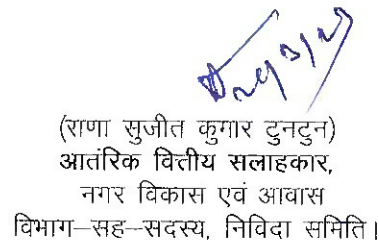 (राणा सुजीत कुमार टुनटुन)
आतंरिक वित्तीय सलाहकार,
नगर विकास एवं आवास
विभाग–सह–सदस्य, निविदा समिति।